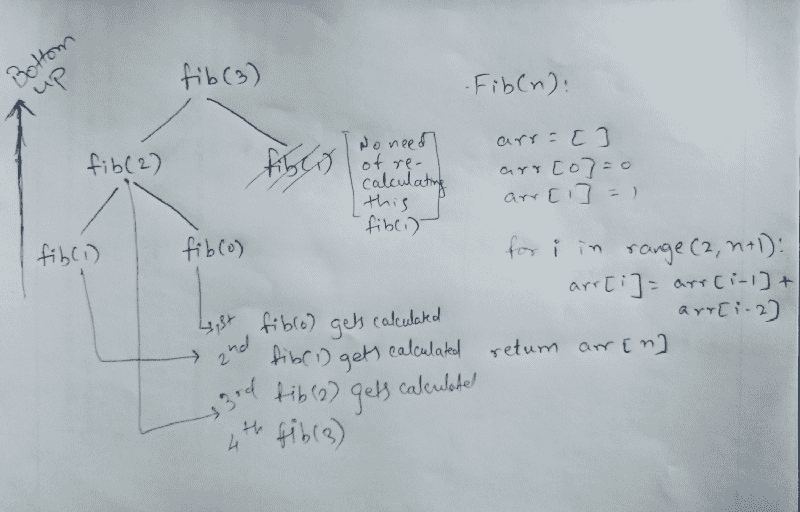 Bottom
up
fib(3)
fib(2)
fib(1)
No need
of re-
calculating
this
fib(1)
fib(1)
fib(0)
1st fib(0) gets calculated
2nd fib(1) gets calculated
3rd fib(2) gets calculated
4th fib(3)
Fib(n):
arr = []
arr[0] = 0
arr[1] = 1
for i in range(2, n+1):
arr[i] = arr[i-1] +
arr[i-2]
return arr[n]